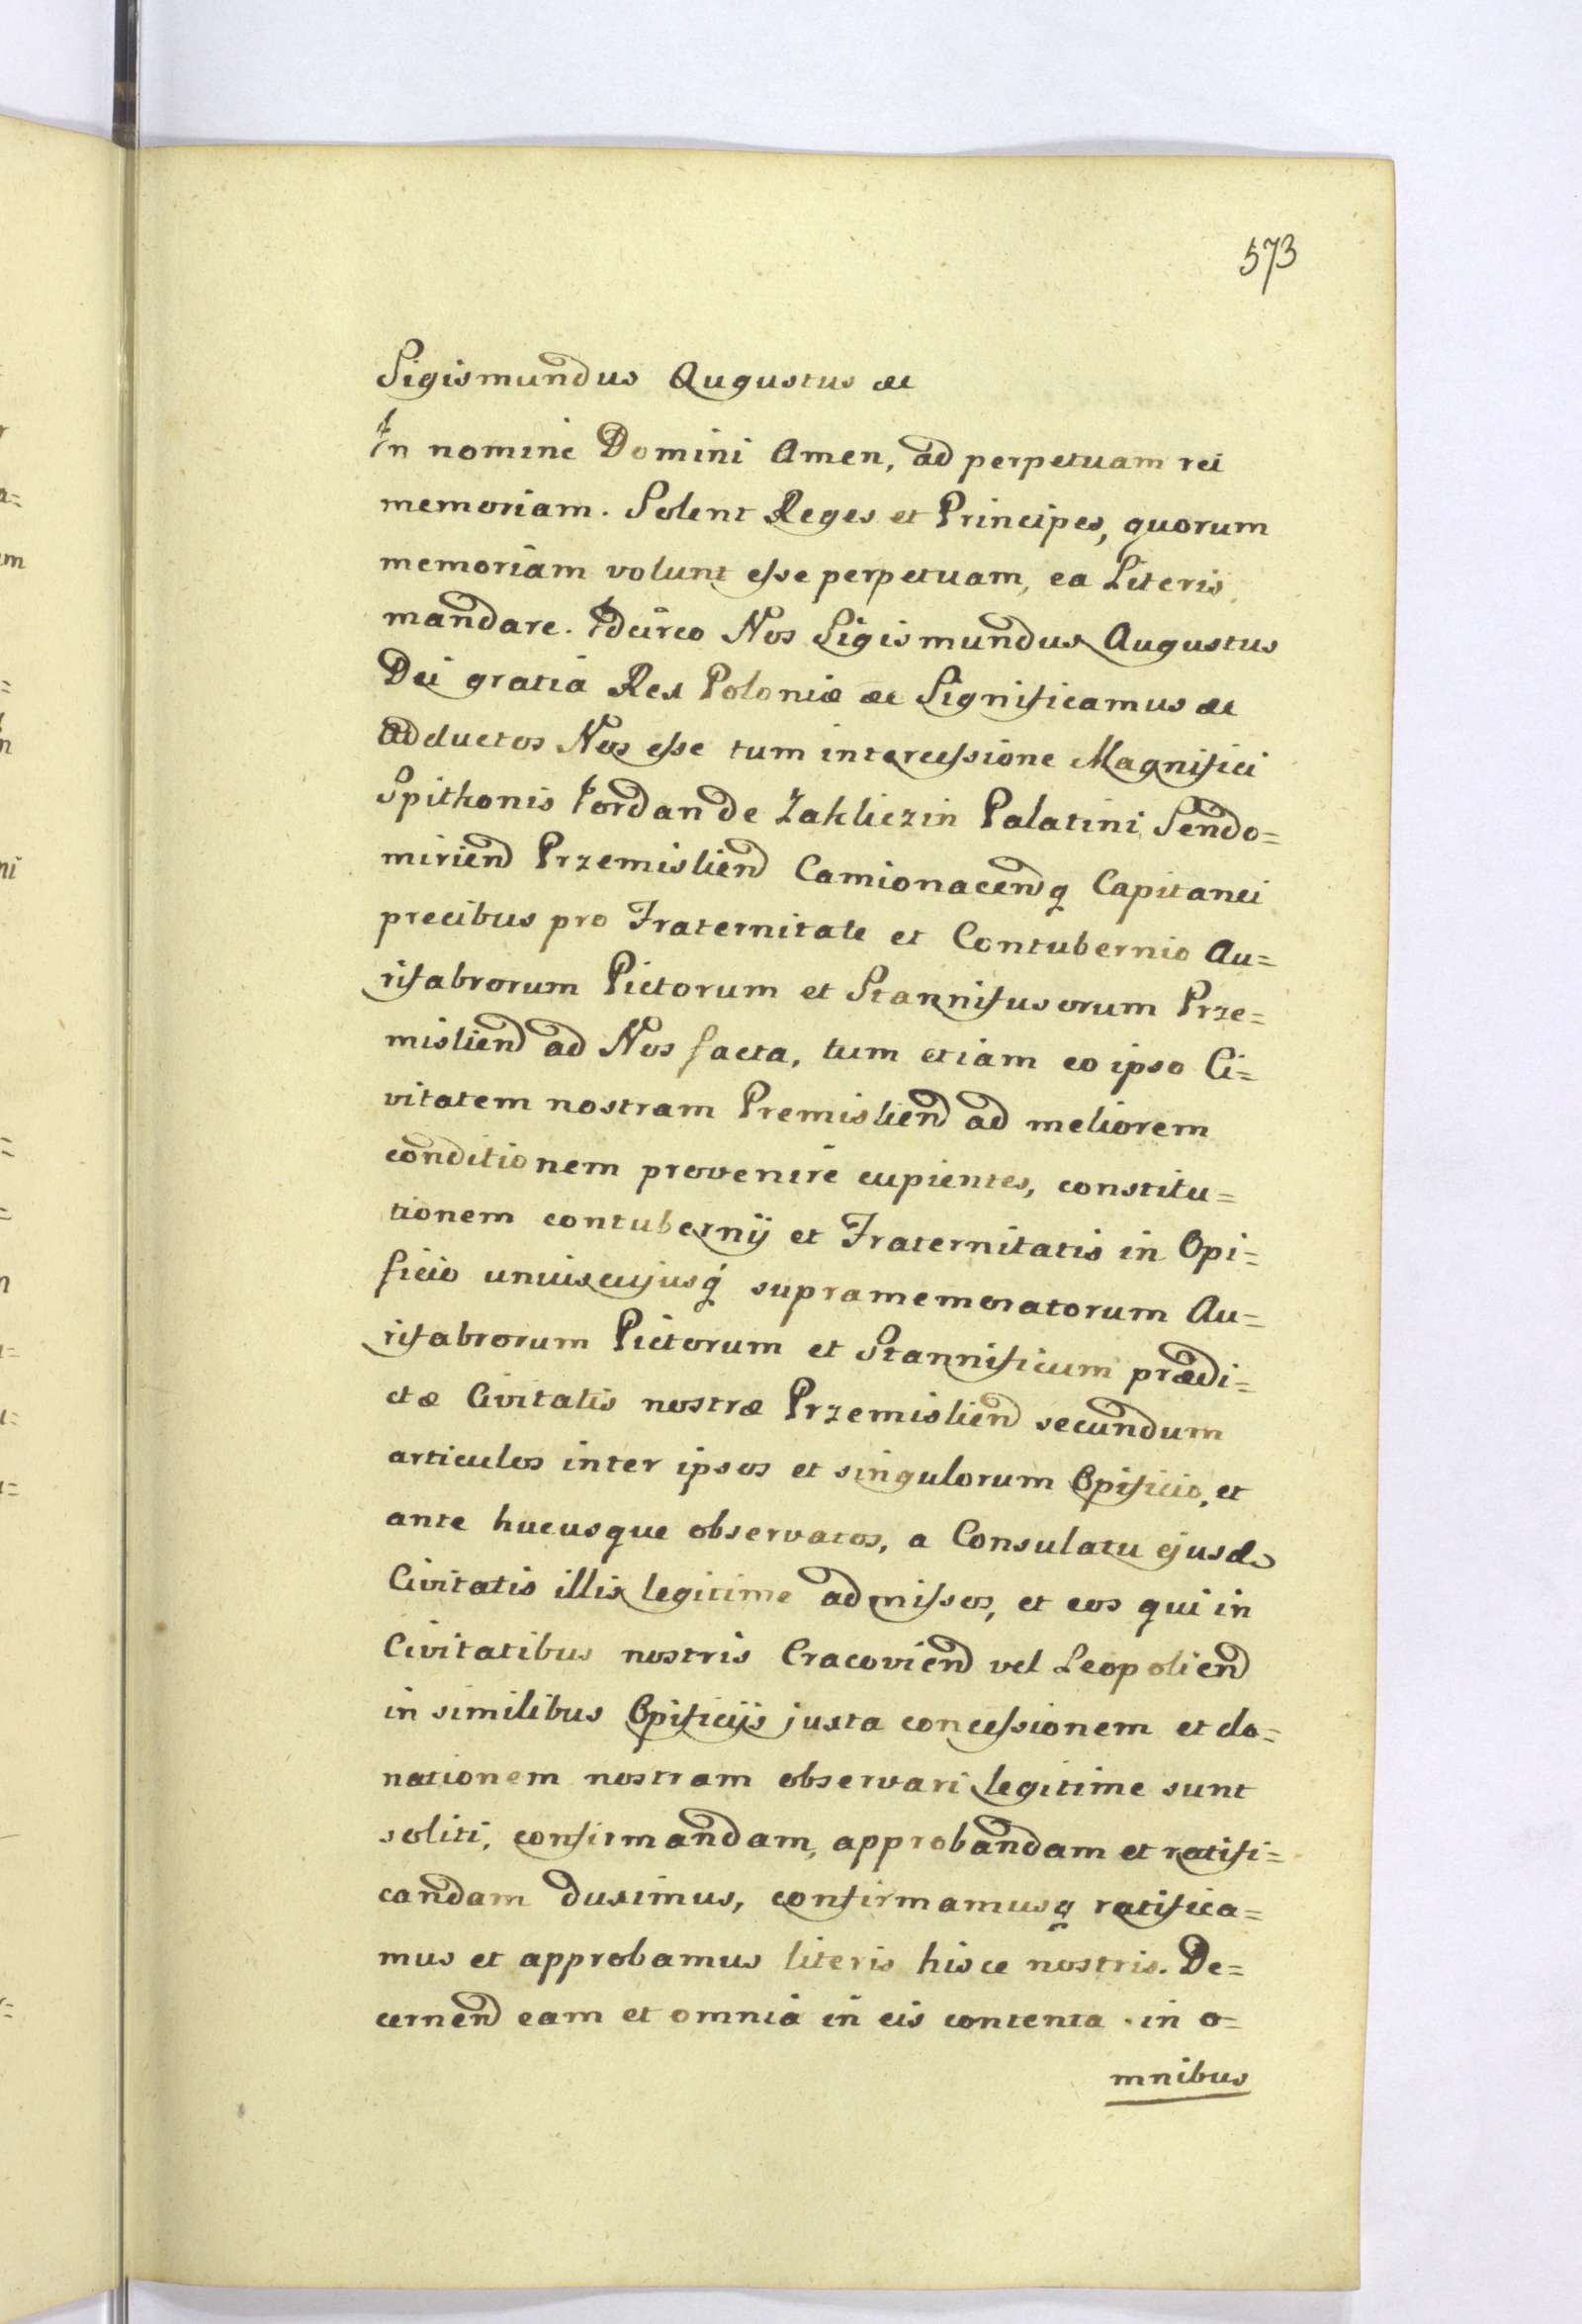 573
Sigismundus Augustus &c
In nomine Domini Amen, ad perpetuam rei
memoriam. Solent Reges et Principes, quorum
memoriam volunt esse perpetuam, ea Literis
mandare. Idcirco Nos Sigismundus Augustus
Dei gratia Rex Poloniæ &c Significamus &c
Adductos Nos esse tum intercessione Magnifici
Spithonis Jordan de Zakliczin Palatini Sendo=
mirien Przemislien Camionacenq Capitanei
precibus pro Fraternitate et Contubernio Au=
rifabrorum Pictorum et Stannifusorum Prze=
mislien ad Nos facta, tum etiam eo ipso Ci=
vitatem nostram Premislien ad meliorem
conditionem provenire cupientes, constitu=
tionem contubernij et Fraternitatis in Opi=
ficio uniuscujusq supramemoratorum Au=
rifabrorum Pictorum et Stannificum prædi=
ctæ Civitatis nostræ Przemislien secundum
articulos inter ipsos et singulorum Opificio, et
ante hucusque observatos, a Consulatu ejusd
Civitatis illis legitime admissos, et eos qui in
Civitatibus nostris Cracovien vel Leopolien
in similibus Opificijs juxta concessionem et do=
nationem nostram observari legitime sunt
soliti, confirmandam, approbandam et ratifi=
candam duximus, confirmamusq ratifica=
mus et approbamus literis hisce nostris. De=
cernen eam et omnia in eis contenta in o=
mnibus